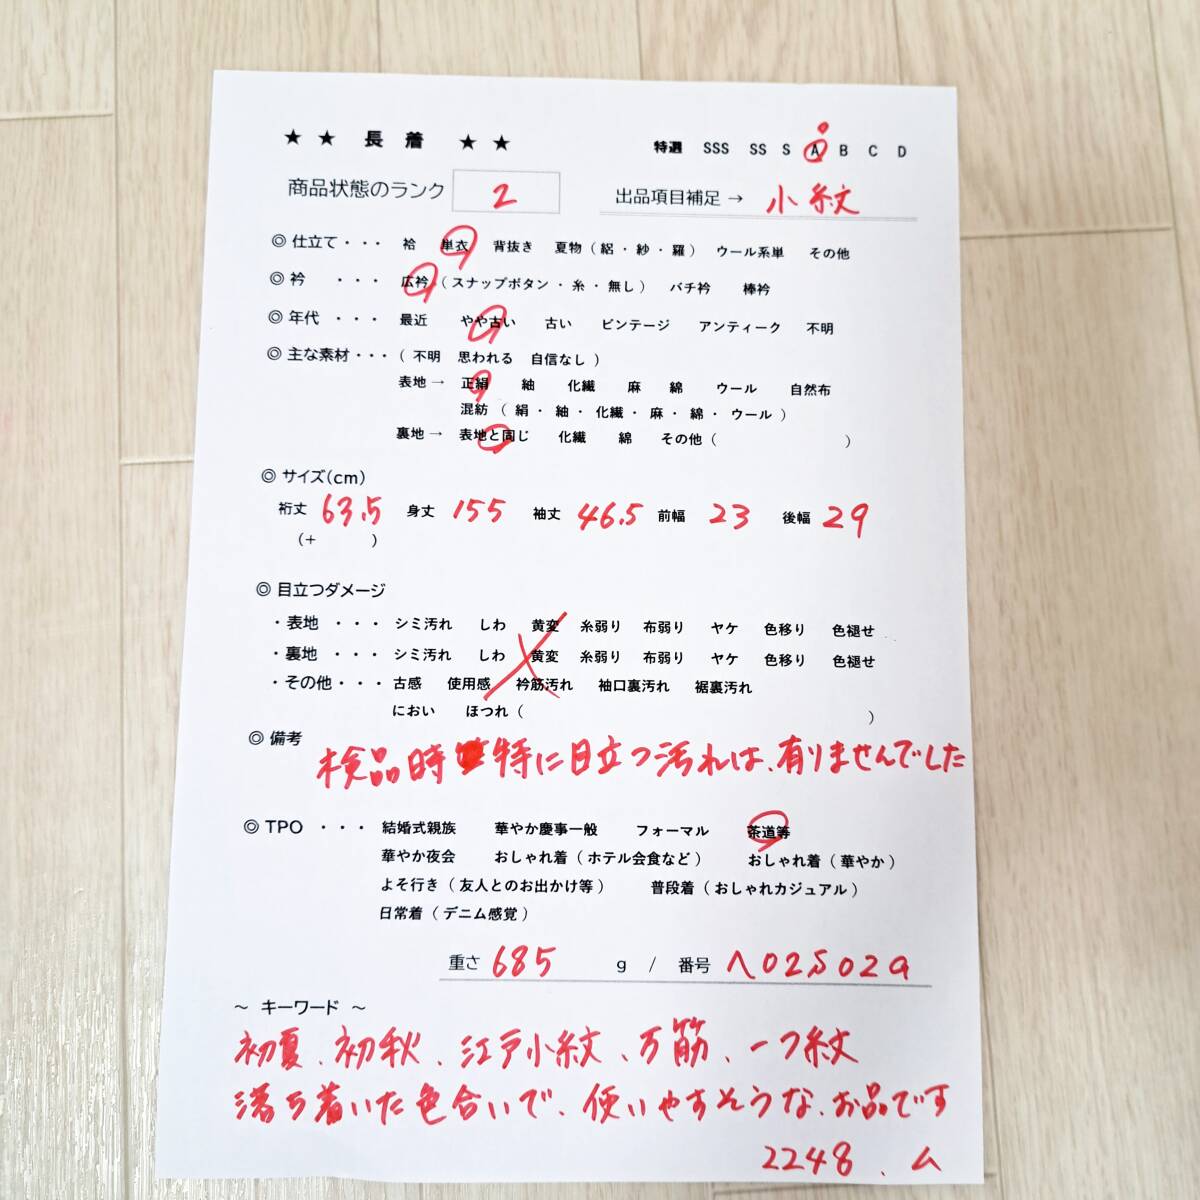 ★ ★ 長 着 ★ ★
特選 SSS SS S A B C D
商品状態のランク 2
出品項目補足 → 小紋
◎ 仕立て・・・ 袷 単衣 背抜き 夏物（絽・紗・羅） ウール系単 その他
◎ 衿 ・・・ 広衿（スナップボタン・糸・無し） バチ衿 棒衿
◎ 年代 ・・・ 最近 やや古い 古い ビンテージ アンティーク 不明
◎ 主な素材・・・（ 不明 思われる 自信なし ）
表地 → 正絹 紬 化繊 麻 綿 ウール 自然布
混紡（ 絹・ 紬・ 化繊・ 麻・ 綿・ ウール ）
裏地 → 表地と同じ 化繊 綿 その他（ ）
◎ サイズ(cm)
裄丈 63.5 身丈 155 袖丈 46.5 前幅 23 後幅 29
（+ ）
◎ 目立つダメージ
・表地 ・・・ シミ汚れ しわ 黄変 糸弱り 布弱り ヤケ 色移り 色褪せ
・裏地 ・・・ シミ汚れ しわ 黄変 糸弱り 布弱り ヤケ 色移り 色褪せ
・その他・・・ 古感 使用感 衿筋汚れ 袖口裏汚れ 裾裏汚れ
におい ほつれ（ ）
◎ 備考
検品時 特に目立つ汚れは、有りませんでした
◎ TPO ・・・ 結婚式親族 華やか慶事一般 フォーマル 茶道等
華やか夜会 おしゃれ着（ホテル会食など） おしゃれ着（華やか）
よそ行き（友人とのお出かけ等） 普段着（おしゃれカジュアル）
日常着（デニム感覚）
重さ 685 g / 番号
～ キーワード ～
初夏、初秋、江戸小紋、万筋、一つ紋
落ち着いた色合いで、使いやすそうな、お品です
2248、ム